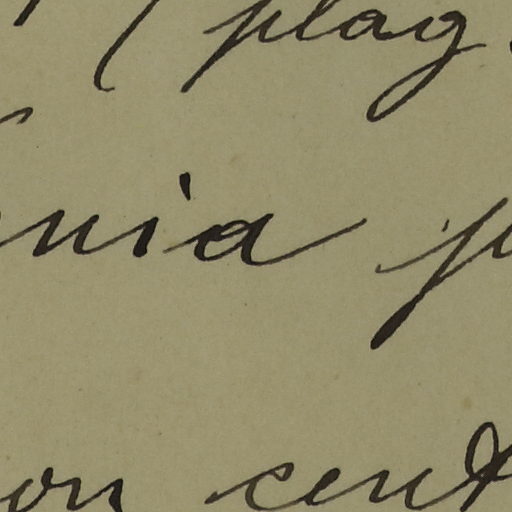 ( plag.
nia p
on cent